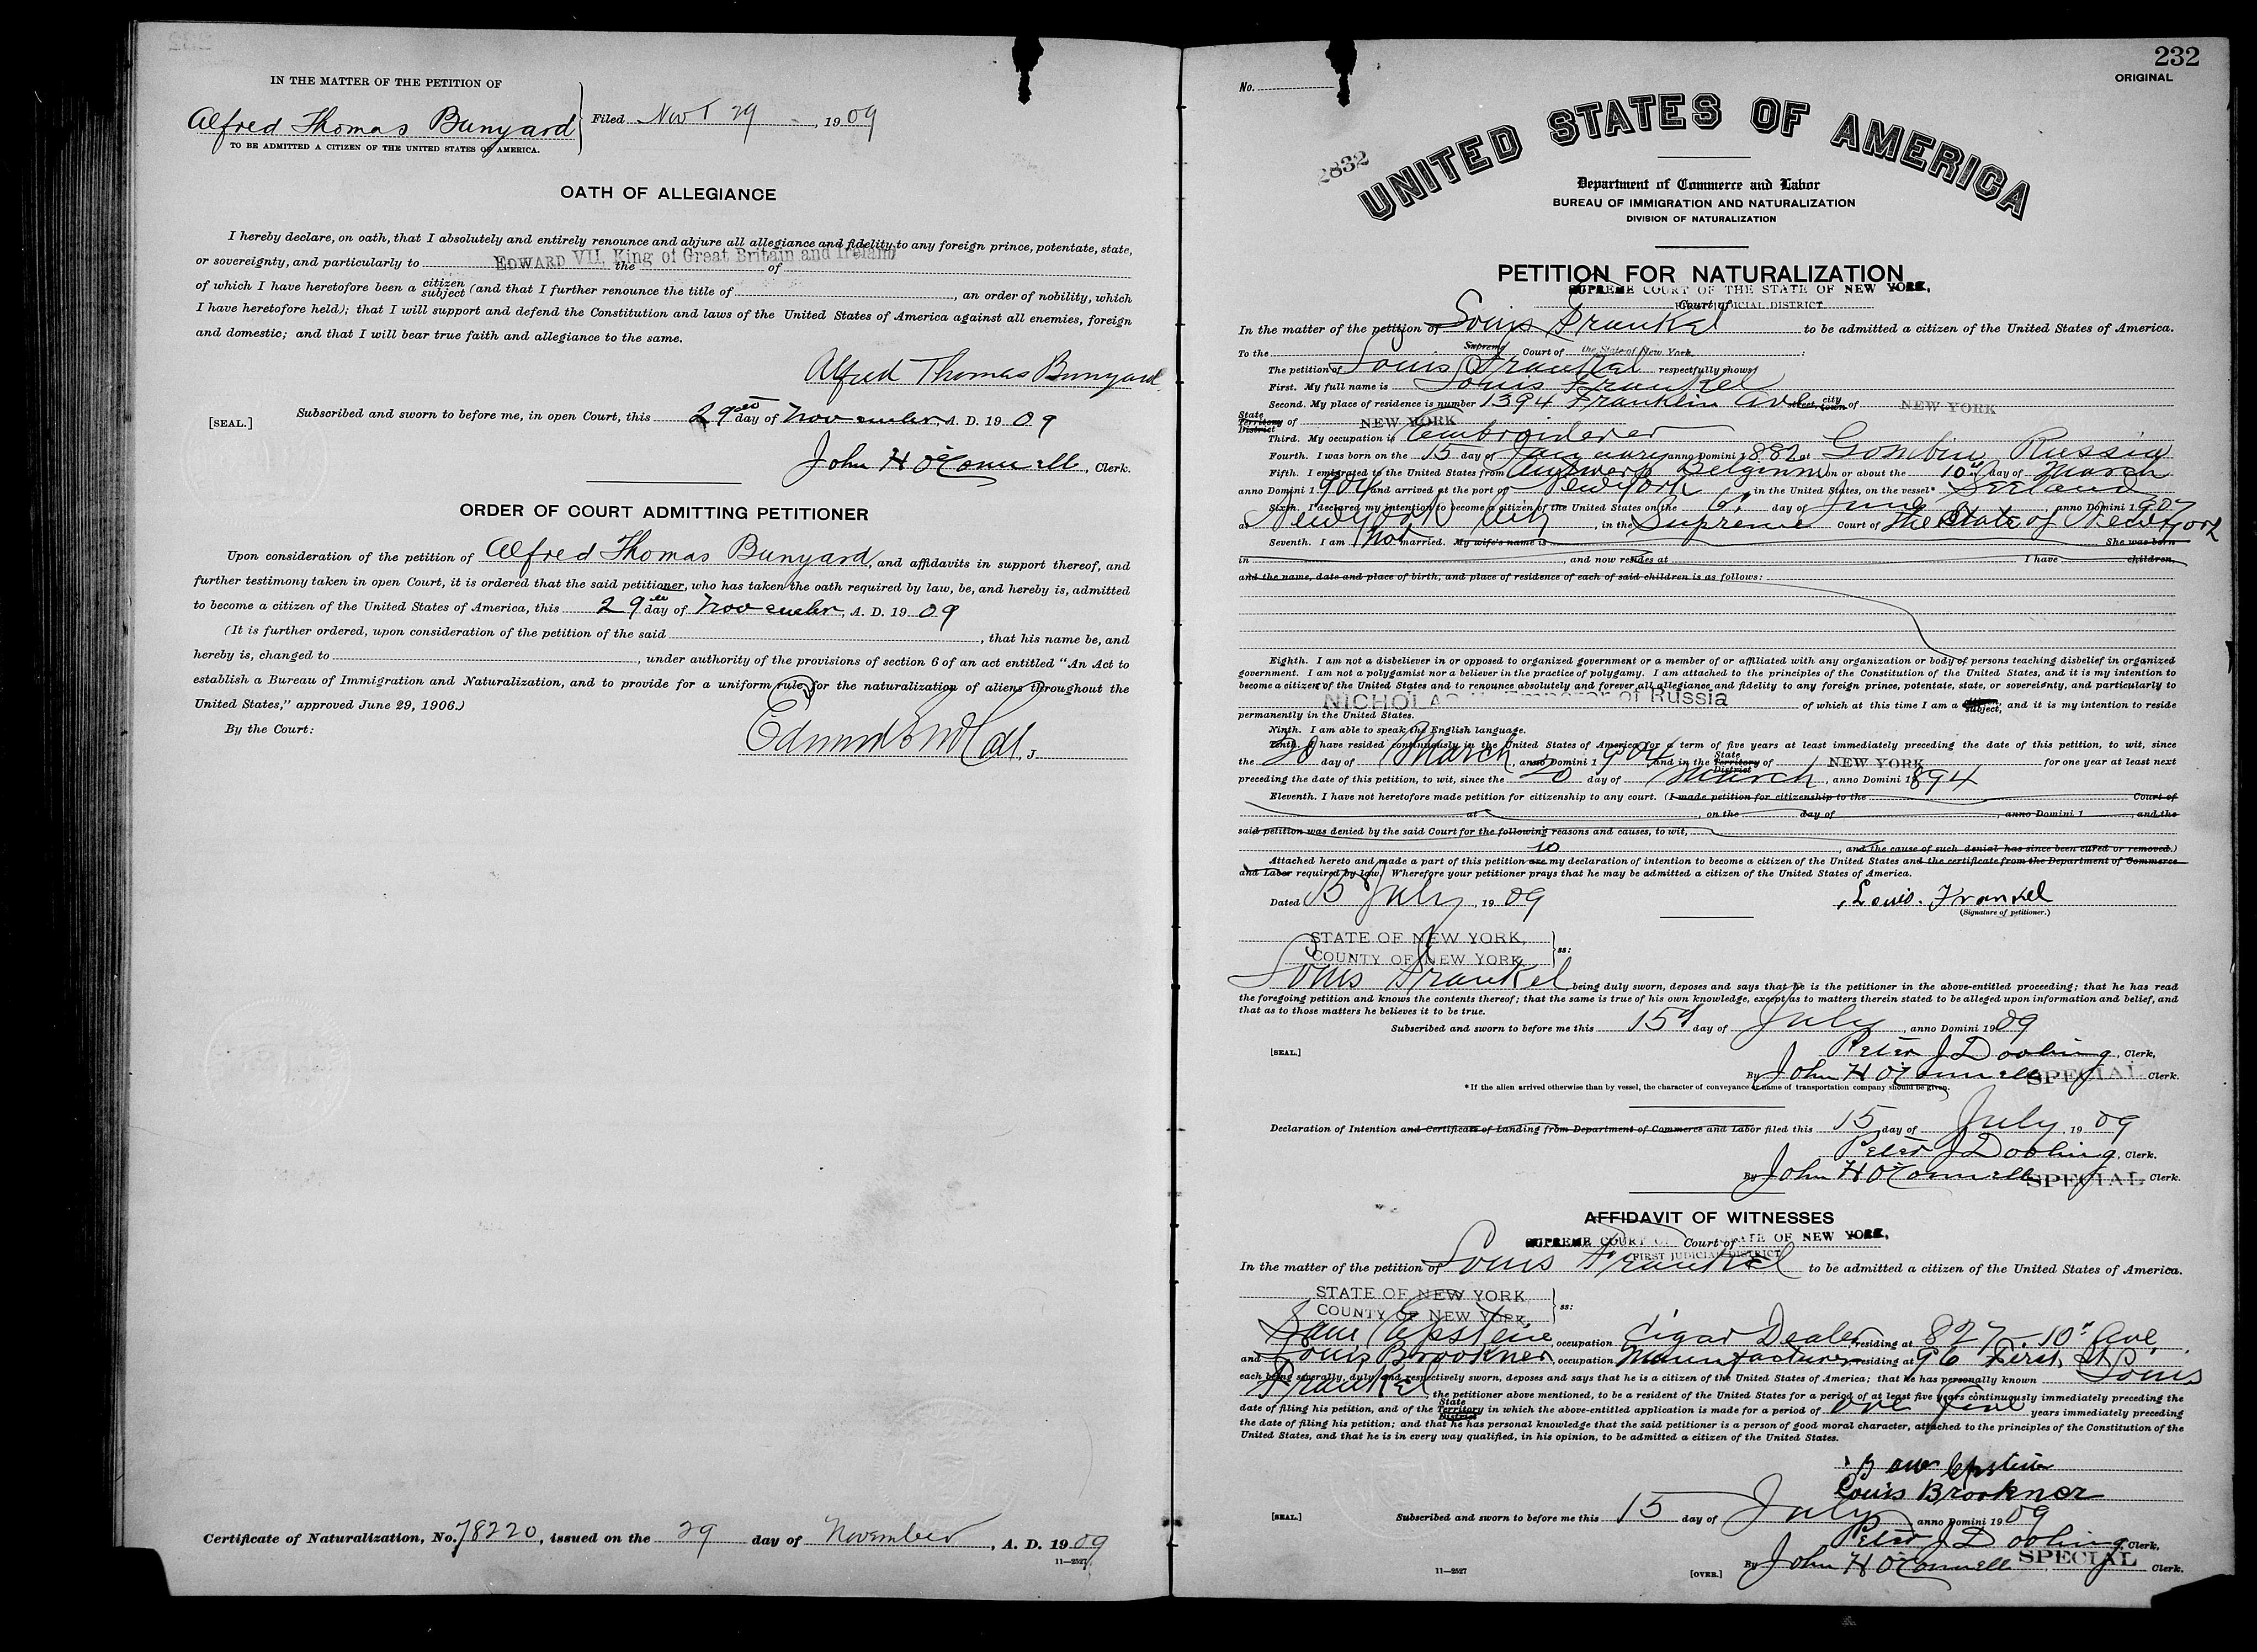 IN THE MATTER OF THE PETITION OF
Alfred Thomas Bunyard
Filed Nov 29, 1909
TO BE ADMITTED A CITIZEN OF THE UNITED STATES OF AMERICA.
OATH OF ALLEGIANCE
I hereby declare, on oath, that I absolutely and entirely renounce and abjure all allegiance and fidelity to any foreign prince, potentate, state,
or sovereignty, and particularly to EDWARD VII, King of Great Britain and Ireland the of
of which I have heretofore been a citizen subject (and that I further renounce the title of , an order of nobility, which
I have heretofore held); that I will support and defend the Constitution and laws of the United States of America against all enemies, foreign
and domestic; and that I will bear true faith and allegiance to the same.
Alfred Thomas Bunyard
[SEAL.] Subscribed and sworn to before me, in open Court, this 29th day of November, A. D. 1909
John H O'Connell, Clerk.
ORDER OF COURT ADMITTING PETITIONER
Upon consideration of the petition of Alfred Thomas Bunyard, and affidavits in support thereof, and
further testimony taken in open Court, it is ordered that the said petitioner, who has taken the oath required by law, be, and hereby is, admitted
to become a citizen of the United States of America, this 29th day of November, A. D. 1909
(It is further ordered, upon consideration of the petition of the said , that his name be, and
hereby is, changed to , under authority of the provisions of section 6 of an act entitled "An Act to
establish a Bureau of Immigration and Naturalization, and to provide for a uniform rule for the naturalization of aliens throughout the
United States," approved June 29, 1906.)
By the Court:
J.
Certificate of Naturalization, No. 78220, issued on the 29 day of November, A. D. 1909
11—2527
232
ORIGINAL
No.
2832
UNITED STATES OF AMERICA
Department of Commerce and Labor
BUREAU OF IMMIGRATION AND NATURALIZATION
DIVISION OF NATURALIZATION
PETITION FOR NATURALIZATION
SUPREME COURT OF THE STATE OF NEW YORK,
Court of JUDICIAL DISTRICT
In the matter of the petition of Louis Frankel to be admitted a citizen of the United States of America.
To the Supreme Court of the State of New York :
The petition of Louis Frankel respectfully shows:
First. My full name is Louis Frankel
Second. My place of residence is number 1394 Franklin Ave street, city town of NEW YORK
State Territory District of NEW YORK
Third. My occupation is Embroiderer
Fourth. I was born on the 15 day of January anno Domini 1882 at Gombin Russia
Fifth. I emigrated to the United States from Antwerp Belgium on or about the 10th day of March
anno Domini 1904 and arrived at the port of New York in the United States, on the vessel* Seeland
Sixth. I declared my intention to become a citizen of the United States on the 6" day of June anno Domini 1907
at New York City, in the Supreme Court of the State of New York
Seventh. I am not married. My wife's name is She was born
in , and now resides at I have children,
and the name, date and place of birth, and place of residence of each of said children is as follows:
Eighth. I am not a disbeliever in or opposed to organized government or a member of or affiliated with any organization or body of persons teaching disbelief in organized
government. I am not a polygamist nor a believer in the practice of polygamy. I am attached to the principles of the Constitution of the United States, and it is my intention to
become a citizen of the United States and to renounce absolutely and forever all allegiance and fidelity to any foreign prince, potentate, state, or sovereignty, and particularly to
NICHOLAS of Russia of which at this time I am a citizen subject, and it is my intention to reside
permanently in the United States.
Ninth. I am able to speak the English language.
Tenth. I have resided continuously in the United States of America for a term of five years at least immediately preceding the date of this petition, to wit, since
the 20 day of March, anno Domini 1904 and in the State Territory District of NEW YORK for one year at least next
preceding the date of this petition, to wit, since the 20 day of March, anno Domini 1894
Eleventh. I have not heretofore made petition for citizenship to any court. (I made petition for citizenship to the Court of
at , on the day of , anno Domini 1 , and the
said petition was denied by the said Court for the following reasons and causes, to wit,
, and the cause of such denial has since been cured or removed.)
Attached hereto and made a part of this petition are is my declaration of intention to become a citizen of the United States and the certificate from the Department of Commerce
and Labor required by law. Wherefore your petitioner prays that he may be admitted a citizen of the United States of America.
Dated 15 July, 1909
Louis. Frankel
(Signature of petitioner.)
STATE OF NEW YORK,
COUNTY OF NEW YORK } ss:
Louis Frankel being duly sworn, deposes and says that he is the petitioner in the above-entitled proceeding; that he has read
the foregoing petition and knows the contents thereof; that the same is true of his own knowledge, except as to matters therein stated to be alleged upon information and belief, and
that as to those matters he believes it to be true.
Subscribed and sworn to before me this 15" day of July, anno Domini 1909
[SEAL.] Peter J Dooling, Clerk,
By John H O'Connell SPECIAL Clerk.
*If the alien arrived otherwise than by vessel, the character of conveyance or name of transportation company should be given.
Declaration of Intention and Certificate of Landing from Department of Commerce and Labor filed this 15 day of July, 1909
Peter J Dooling, Clerk.
By John H O'Connell SPECIAL Clerk.
AFFIDAVIT OF WITNESSES
SUPREME COURT OF Court of STATE OF NEW YORK,
FIRST JUDICIAL DISTRICT
In the matter of the petition of Louis Frankel to be admitted a citizen of the United States of America.
STATE OF NEW YORK
COUNTY OF NEW YORK, } ss:
Sam Epstein, occupation Cigar Dealer, residing at 827 10" Ave,
and Louis Brookner, occupation Manufacturer, residing at 96 First St
each being severally, duly, and respectively sworn, deposes and says that he is a citizen of the United States of America; that he has personally known Louis
Frankel the petitioner above mentioned, to be a resident of the United States for a period of at least five years continuously immediately preceding the
date of filing his petition, and of the State Territory District in which the above-entitled application is made for a period of five years immediately preceding
the date of filing his petition; and that he has personal knowledge that the said petitioner is a person of good moral character, attached to the principles of the Constitution of the
United States, and that he is in every way qualified, in his opinion, to be admitted a citizen of the United States.
Sam Epstein
Louis Brookner
[SEAL.] Subscribed and sworn to before me this 15 day of July anno Domini 1909
Peter J Dooling, Clerk,
11—2527 [OVER.] By John H O'Connell SPECIAL Clerk.